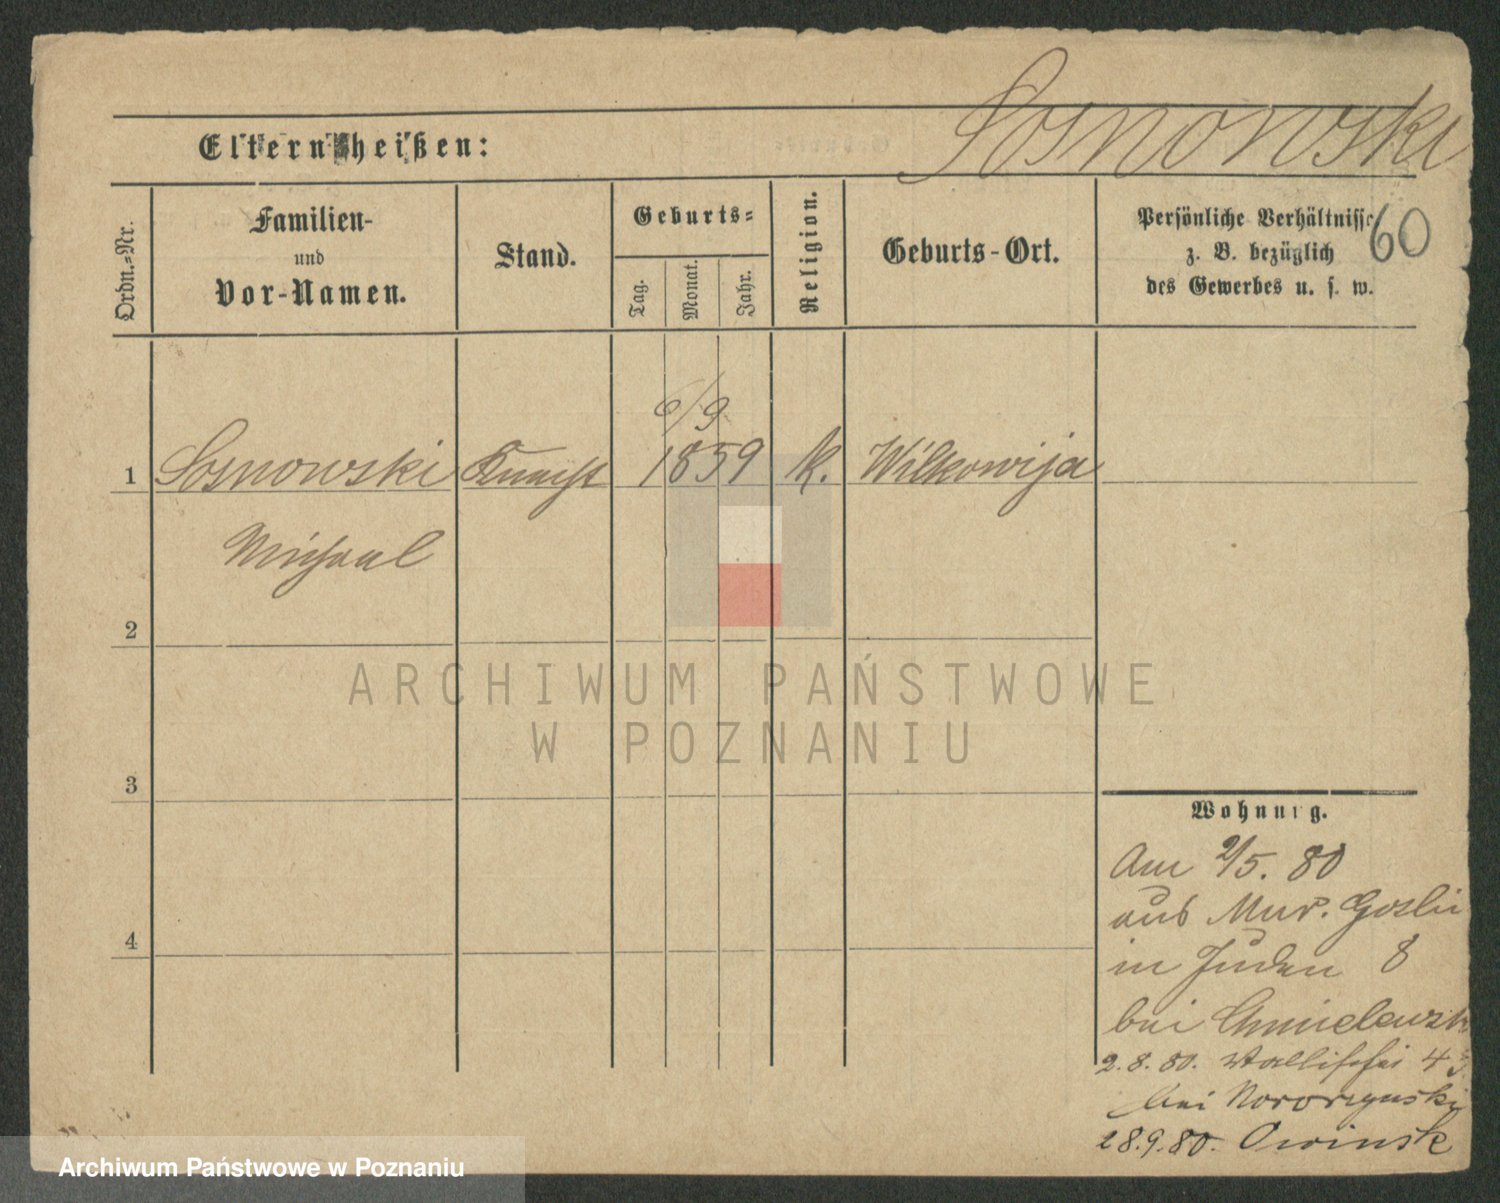 Sosnowski
Eltern heißen:
Ordn.-Nr.
Familien-
und
Vor-Namen.
Stand.
Geburts-
Tag.
Monat.
Jahr.
Religion.
Geburts-Ort.
Persönliche Verhältnisse
z. B. bezüglich
des Gewerbes u. s. w.
60
6/9
1 Sosnowski Knecht 1859 k. Wilkowija
Michael
2
3
4
ARCHIWUM PAŃSTWOWE
W POZNANIU
Wohnung.
Am 2/5. 80
aus Mur. Goslin
in Juden 8
bei Chmielewski
2.8.80. Wallischei 4
bei
28.9.80. Owinsk
Archiwum Państwowe w Poznaniu